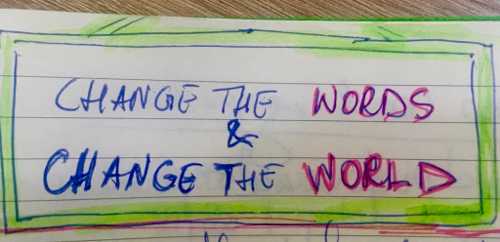 CHANGE THE WORDS
&
CHANGE THE WORLD